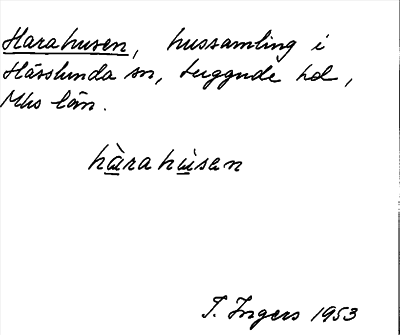 Harahusen, hussamling i
Hässlunda sn, Luggude hd,
Mhs län.
hàrahùsen
I. Ingers 1953